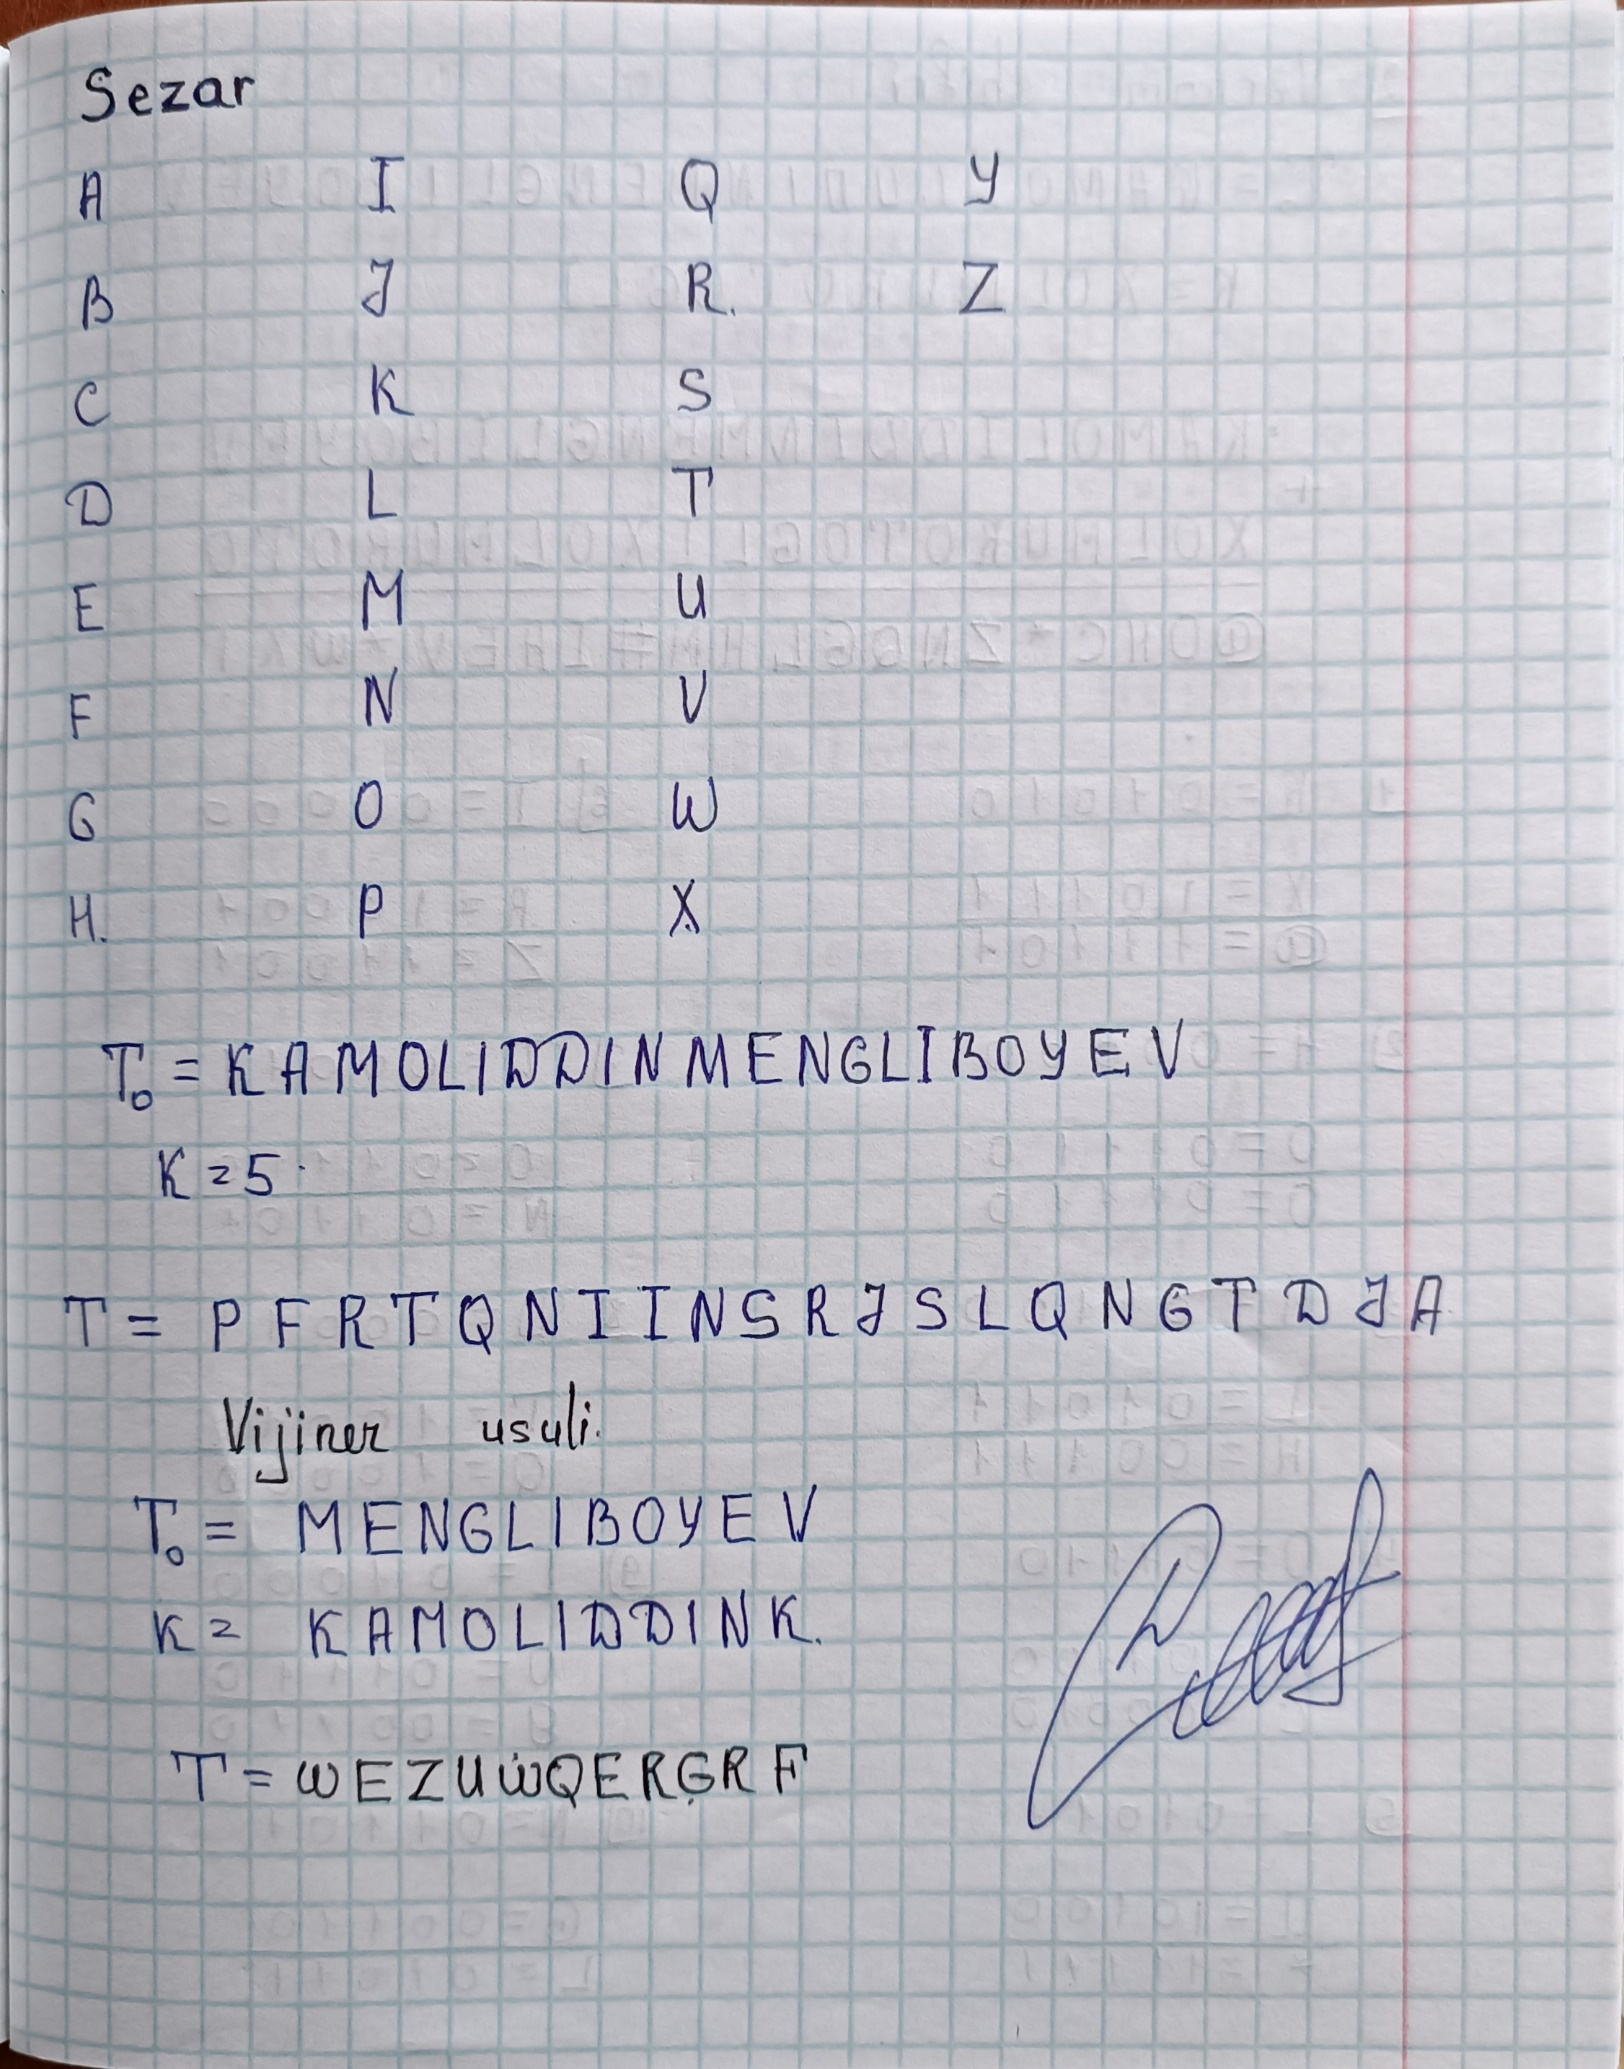 Sezar
A I Q Y
B J R. Z
C K S
D L T
E M U
F N V
G O W
H. P X
T₀ = KAMOLIDDINMENGLIBOYEV
K = 5
T = PFRTQNIINSRJSLQNGTDJA
Vijiner usuli.
T₀ = MENGLIBOYEV
K = KAMOLIDDINK.
T = WEZUWQERGRF